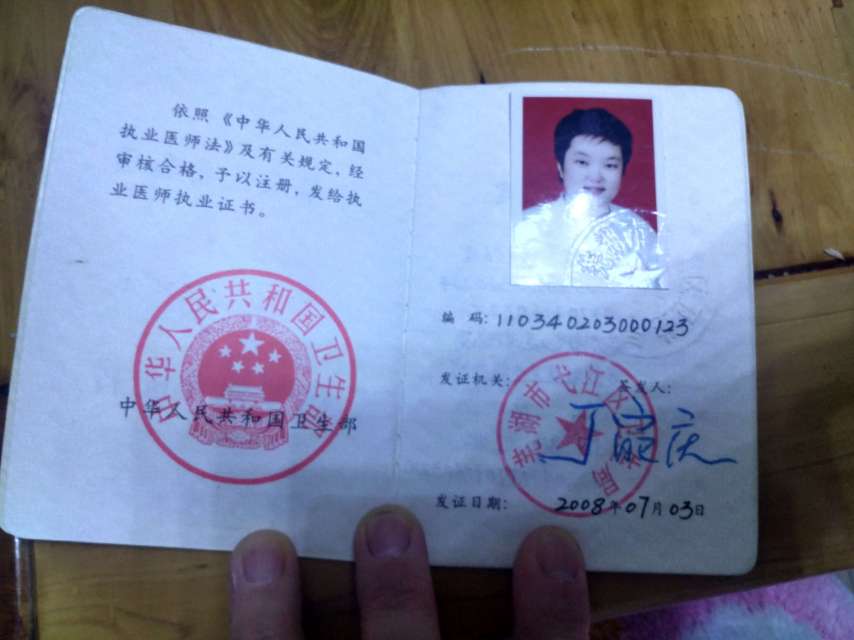 依照《中华人民共和国
执业医师法》及有关规定,经
审核合格,予以注册,发给执
业医师执业证书。
中华人民共和国卫生部
中华人民共和国卫生部
编 码:110340203000123
发证机关:
签发人:
芜湖市弋江区卫生局
发证日期:
2008年07月03日